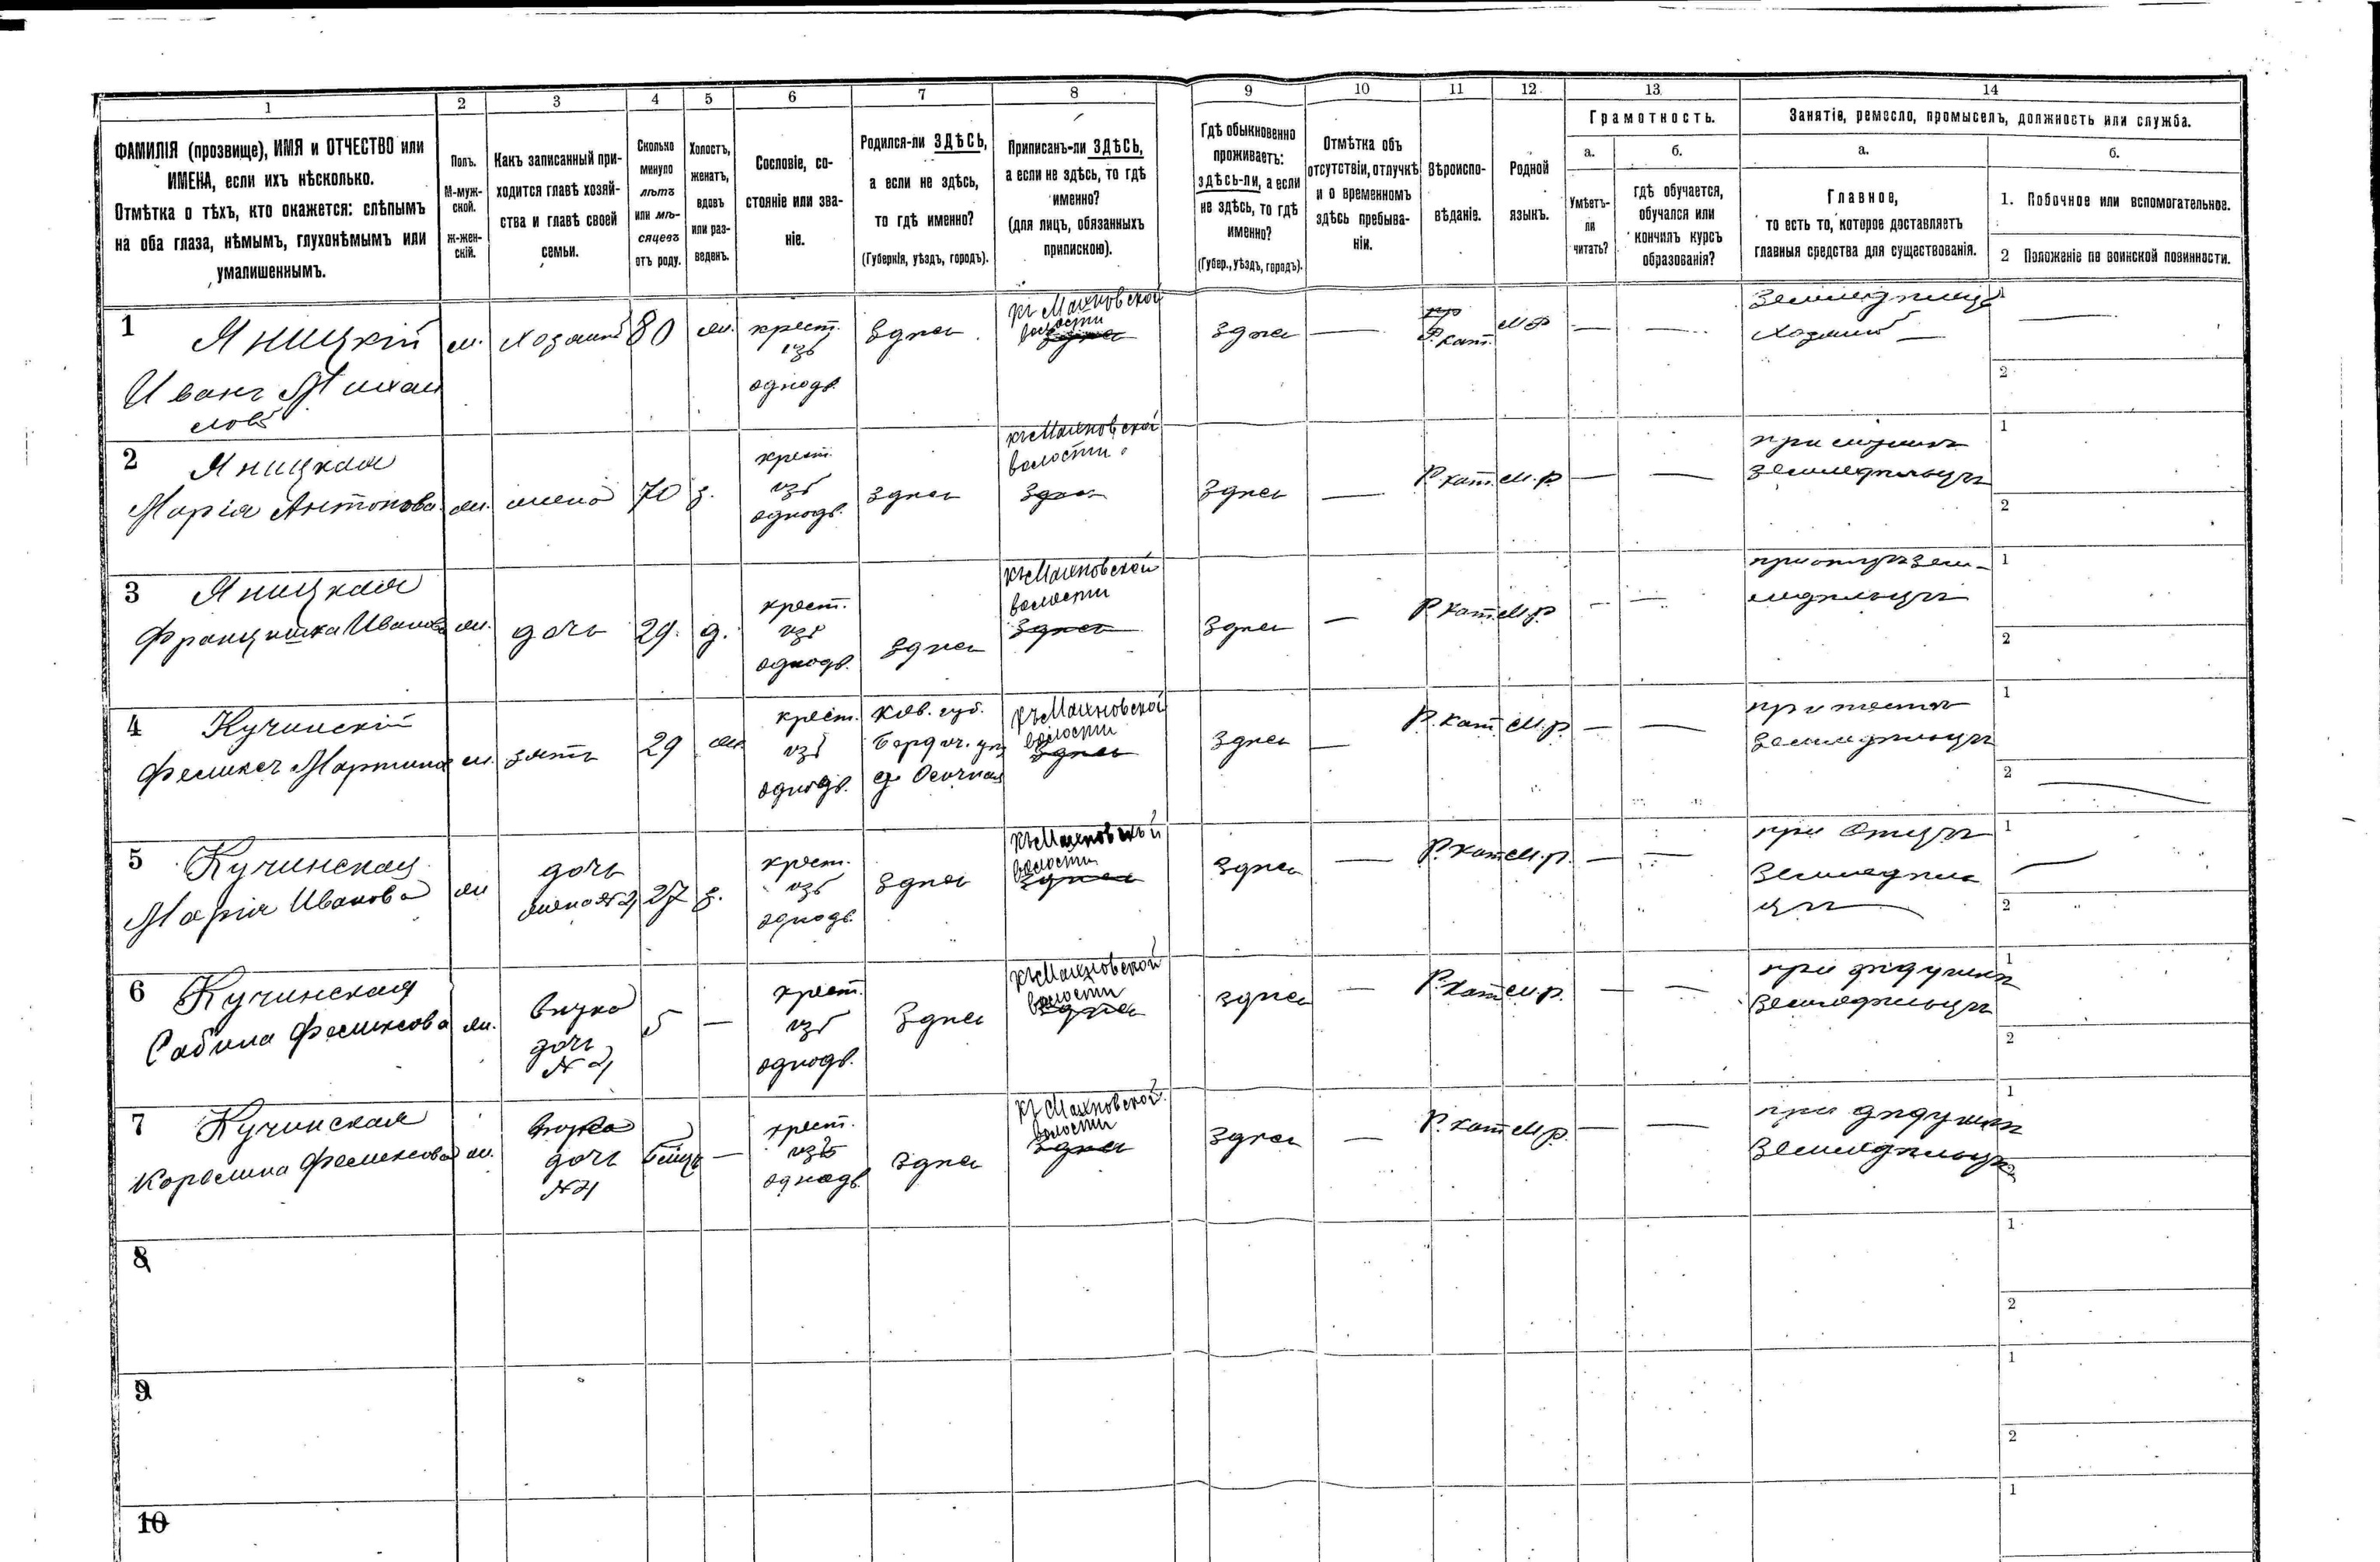 1 2 3 4 5 6 7 8 9 10 11 12 13 14
ФАМИЛІЯ (прозвище), ИМЯ и ОТЧЕСТВО или
ИМЕНА, если ихъ нѣсколько.
Отмѣтка о тѣхъ, кто окажется: слѣпымъ
на оба глаза, нѣмымъ, глухонѣмымъ или
умалишеннымъ.
Полъ.
М-муж-
ской.
Ж-жен-
скій.
Какъ записанный при-
ходится главѣ хозяй-
ства и главѣ своей
семьи.
Сколько
минуло
лѣтъ
или мѣ-
сяцевъ
отъ роду.
Холостъ,
женатъ,
вдовъ
или раз-
веденъ.
Сословіе, со-
стояніе или зва-
ніе.
Родился-ли ЗДѢСЬ,
а если не здѣсь,
то гдѣ именно?
(Губернія, уѣздъ, городъ).
Приписанъ-ли ЗДѢСЬ,
а если не здѣсь, то гдѣ
именно?
(для лицъ, обязанныхъ
припискою).
Гдѣ обыкновенно
проживаетъ:
здѣсь-ли, а если
не здѣсь, то гдѣ
именно?
(Губер., уѣздъ, городъ).
Отмѣтка объ
отсутствіи, отлучкѣ
и о временномъ
здѣсь пребыва-
ніи.
Вѣроиспо-
вѣданіе.
Родной
языкъ.
Грамотность.
а.
Умѣетъ-
ли
читать?
б.
гдѣ обучается,
обучался или
кончилъ курсъ
образованія?
Занятіе, ремесло, промыселъ, должность или служба.
а.
Главное,
то есть то, которое доставляетъ
главныя средства для существованія.
б.
1. Побочное или вспомогательное.
2 Положеніе по воинской повинности.
1 Яницкій
Иванъ Михаи
ловъ
м. Хозяинъ 80 ж. крест.
изъ
однодв.
Здѣсь
къ Махновской
волости
здѣсь
Здѣсь — Р. кат. м. р. — —
Земледѣлецъ
Хозяинъ —
1
2
2 Яницкая
Марія Антонова
ж. жена 70 з. крест.
изъ
однодв.
Здѣсь
къ Махновской
волости
Здѣсь
Здѣсь — Р. кат. м. р. — —
при мужѣ
земледѣльцѣ
1
2
3 Яницкая
Францишка Иванова
ж. дочь 29. д. крест.
изъ
однодв.
Здѣсь
къ Махновской
волости
Здѣсь
Здѣсь — Р. кат. м. р. — —
при отцѣ зем-
ледѣльцѣ
1
2
4 Кучинскій
Феликсъ Мартина
м. зять 29 ж. крест.
изъ
однодв.
Кіев. губ.
Бердич. у.
къ Махновской
волости
Здѣсь
Здѣсь — Р. кат. м. р. — —
при тестѣ
земледѣльцѣ
1
2
5 Кучинская
Марія Иванова
ж. дочь
жена №4 27 з. крест.
изъ
однодв.
Здѣсь
къ Махновской
волости
Здѣсь
Здѣсь — Р. кат. м. р. — —
при отцѣ
Земледѣль
цѣ
1
2
6 Кучинская
Сабина Феликсова
ж. внука
дочь
№ 4
5 — крест.
изъ
однодв.
Здѣсь
къ Махновской
волости
Здѣсь
Здѣсь — Р. кат. м. р. — —
при дѣдушкѣ
Земледѣльцѣ
1
2
7 Кучинская
Каролина Феликсова
ж. внука
дочь
№4
— крест.
изъ
однодв.
Здѣсь
къ Махновской
волости
Здѣсь
Здѣсь — Р. кат. м. р. — —
при дѣдушкѣ
Земледѣльцѣ
1
8
1
2
9
1
2
10
1